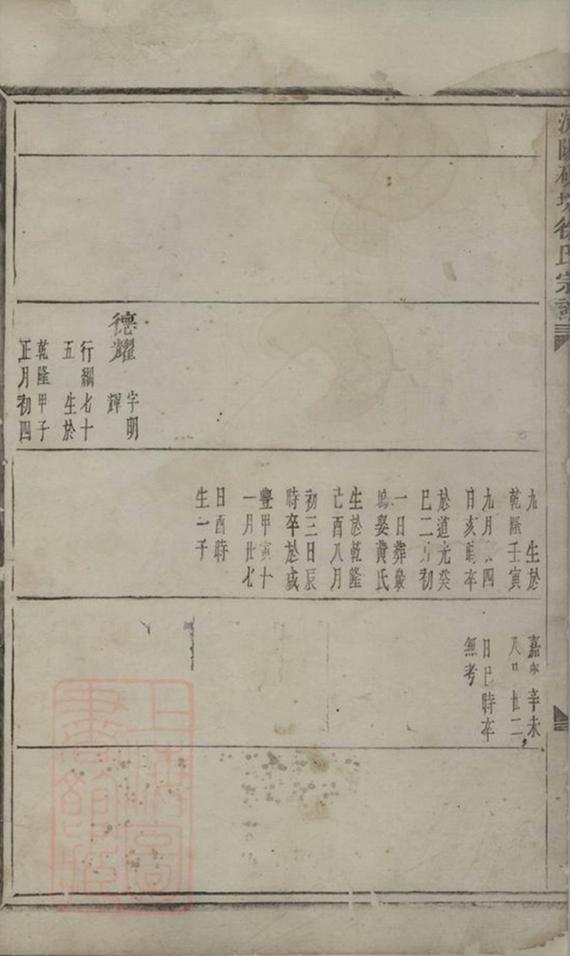 徐氏宗譜
德耀
字明
輝
行綱七十
五 生於
乾隆甲子
正月初四
九 生於
乾隆壬寅
九月 四
日亥時卒
於道光癸
巳二月初
一日葬嚴
塢娶黃氏
生於乾隆
己酉八月
初三日辰
時卒於咸
豐甲寅十
一月廿七
日酉時
生一子
嘉 辛未
八 廿二
日巳時卒
無考
上海圖
書館藏